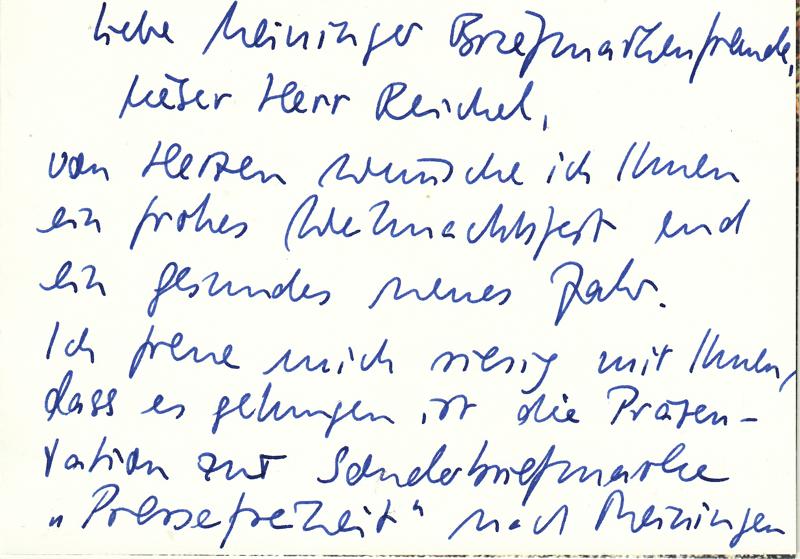 Liebe Meininger Briefmarkenfreunde,
lieber Herr Reichel,
von Herzen wünsche ich Ihnen
ein frohes Weihnachtsfest und
ein gesundes neues Jahr.
Ich freue mich riesig mit Ihnen,
dass es gelungen ist die Präsen-
tation zur Sonderbriefmarke
„Pressefreiheit" nach Meiningen